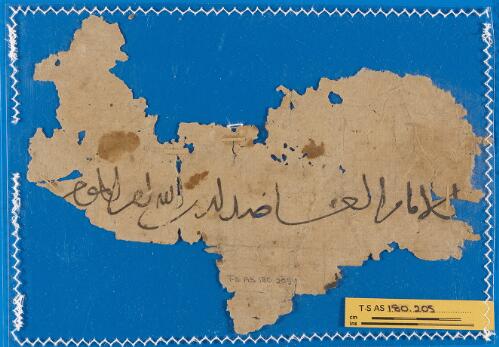 الامام العاضد لدين الله امير المومنين
T-S AS 180.205
T-S AS 180.205
cm
ins